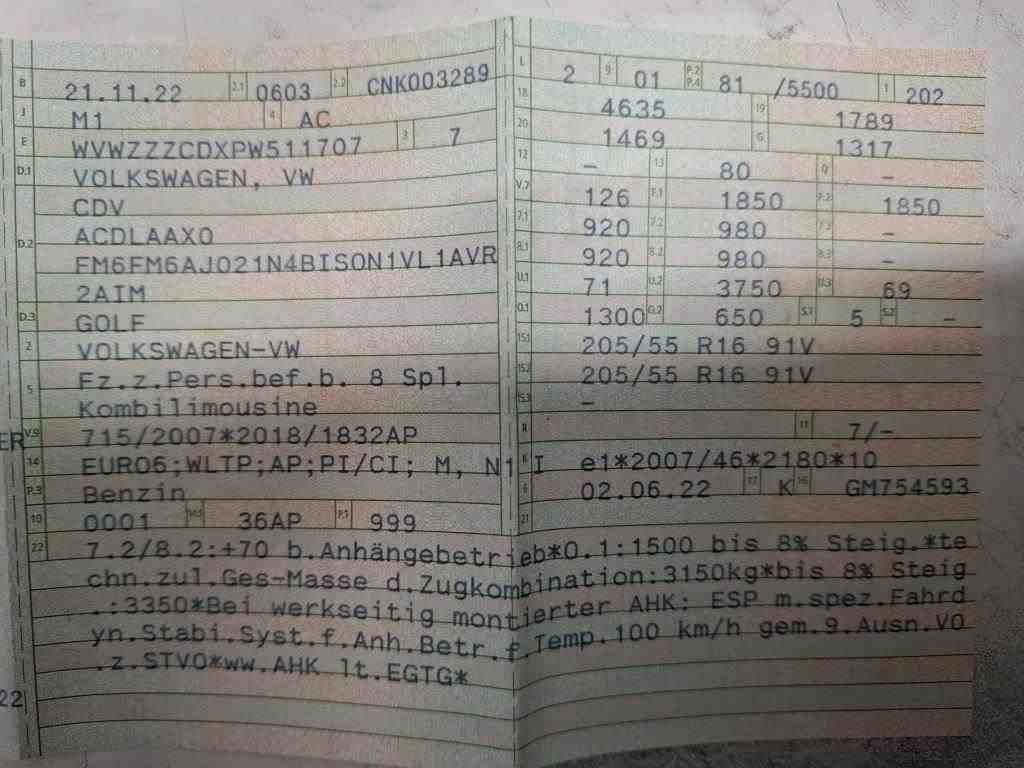 B 21.11.22 2.1 0603 2.2 CNK003289
J M1 4 AC
E WVWZZZCDXPW511707 3 7
D.1 VOLKSWAGEN, VW
CDV
D.2 ACDLAAX0
FM6FM6AJ021N4BISON1VL1AVR
2AIM
D.3 GOLF
2 VOLKSWAGEN-VW
5 Fz.z.Pers.bef.b. 8 Spl.
Kombilimousine
ER V.9 715/2007*2018/1832AP
14 EURO6;WLTP;AP;PI/CI; M, N1 I
P.3 Benzin
10 0001 14.1 36AP P.1 999
L 2 9 01 P.2 P.4 81 /5500 T 202
18 4635 19 1789
20 1469 G 1317
12 - 13 80 Q -
V.7 126 F.1 1850 F.2 1850
7.1 920 7.2 980 7.3 -
8.1 920 8.2 980 8.3 -
U.1 71 U.2 3750 U.3 69
O.1 1300 O.2 650 S.1 5 S.2 -
15.1 205/55 R16 91V
15.2 205/55 R16 91V
15.3 -
R 11 7/-
K e1*2007/46*2180*10
6 02.06.22 17 K 16 GM754593
21
22 7.2/8.2:+70 b.Anhängebetrieb*O.1:1500 bis 8% Steig.*te
chn.zul.Ges-Masse d.Zugkombination:3150kg*bis 8% Steig
.:3350*Bei werkseitig montierter AHK: ESP m.spez.Fahrd
yn.Stabi.Syst.f.Anh.Betr.f.Temp.100 km/h gem.9.Ausn.VO
.z.STVO*ww.AHK lt.EGTG*
22